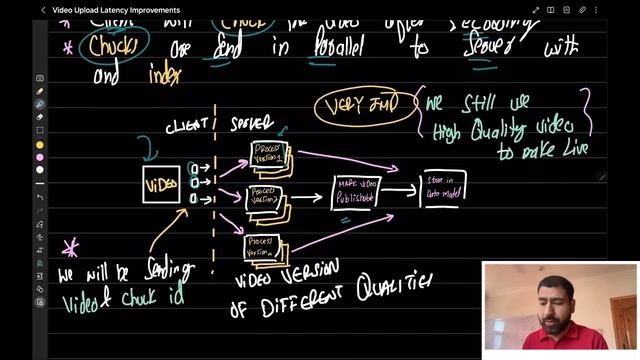 Video Upload Latency Improvements
* Client will Chuck the video after recording
* Chucks are send in Parallel to Server with
and index
VERY IMP
We still use
High Quality video
to make Live
CLIENT
SERVER
VIDEO
PROCESS
VERSION 1
PROCESS
VERSION 2
PROCESS
VERSION
MARK VIDEO
Publishable
Store in
Data Model
*
We will be Sending
Video & Chuck id
VIDEO VERSION
OF DIFFERENT QUALITIES